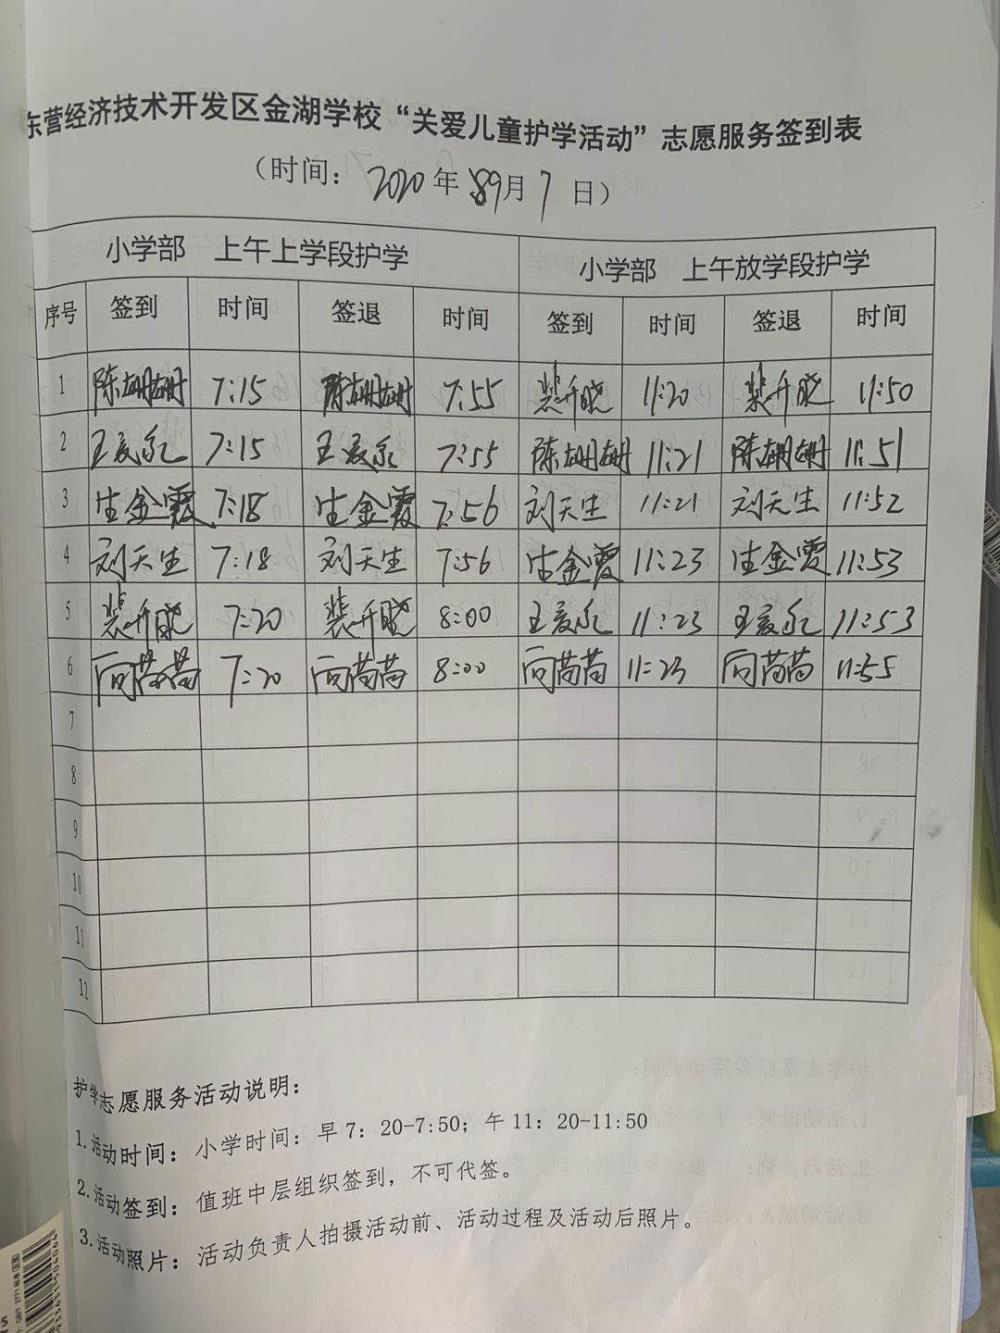 东营经济技术开发区金湖学校“关爱儿童护学活动”志愿服务签到表
（时间：2020年9月7日）
小学部 上午上学段护学 小学部 上午放学段护学
序号 签到 时间 签退 时间 签到 时间 签退 时间
1 陈姗姗 7:15 陈姗姗 7:55 裴升晓 11:20 裴升晓 11:50
2 7:15 7:55 陈姗姗 11:21 陈姗姗 11:51
3 生金霞 7:18 生金霞 7:56 刘天生 11:21 刘天生 11:52
4 刘天生 7:18 刘天生 7:56 生金霞 11:23 生金霞 11:53
5 裴升晓 7:20 裴升晓 8:00 11:23 11:53
6 向苗苗 7:20 向苗苗 8:00 向苗苗 11:23 向苗苗 11:55
7
8
9
10
11
12
护学志愿服务活动说明：
1.活动时间：小学时间：早7：20-7:50；午11：20-11:50
2.活动签到：值班中层组织签到，不可代签。
3.活动照片：活动负责人拍摄活动前、活动过程及活动后照片。